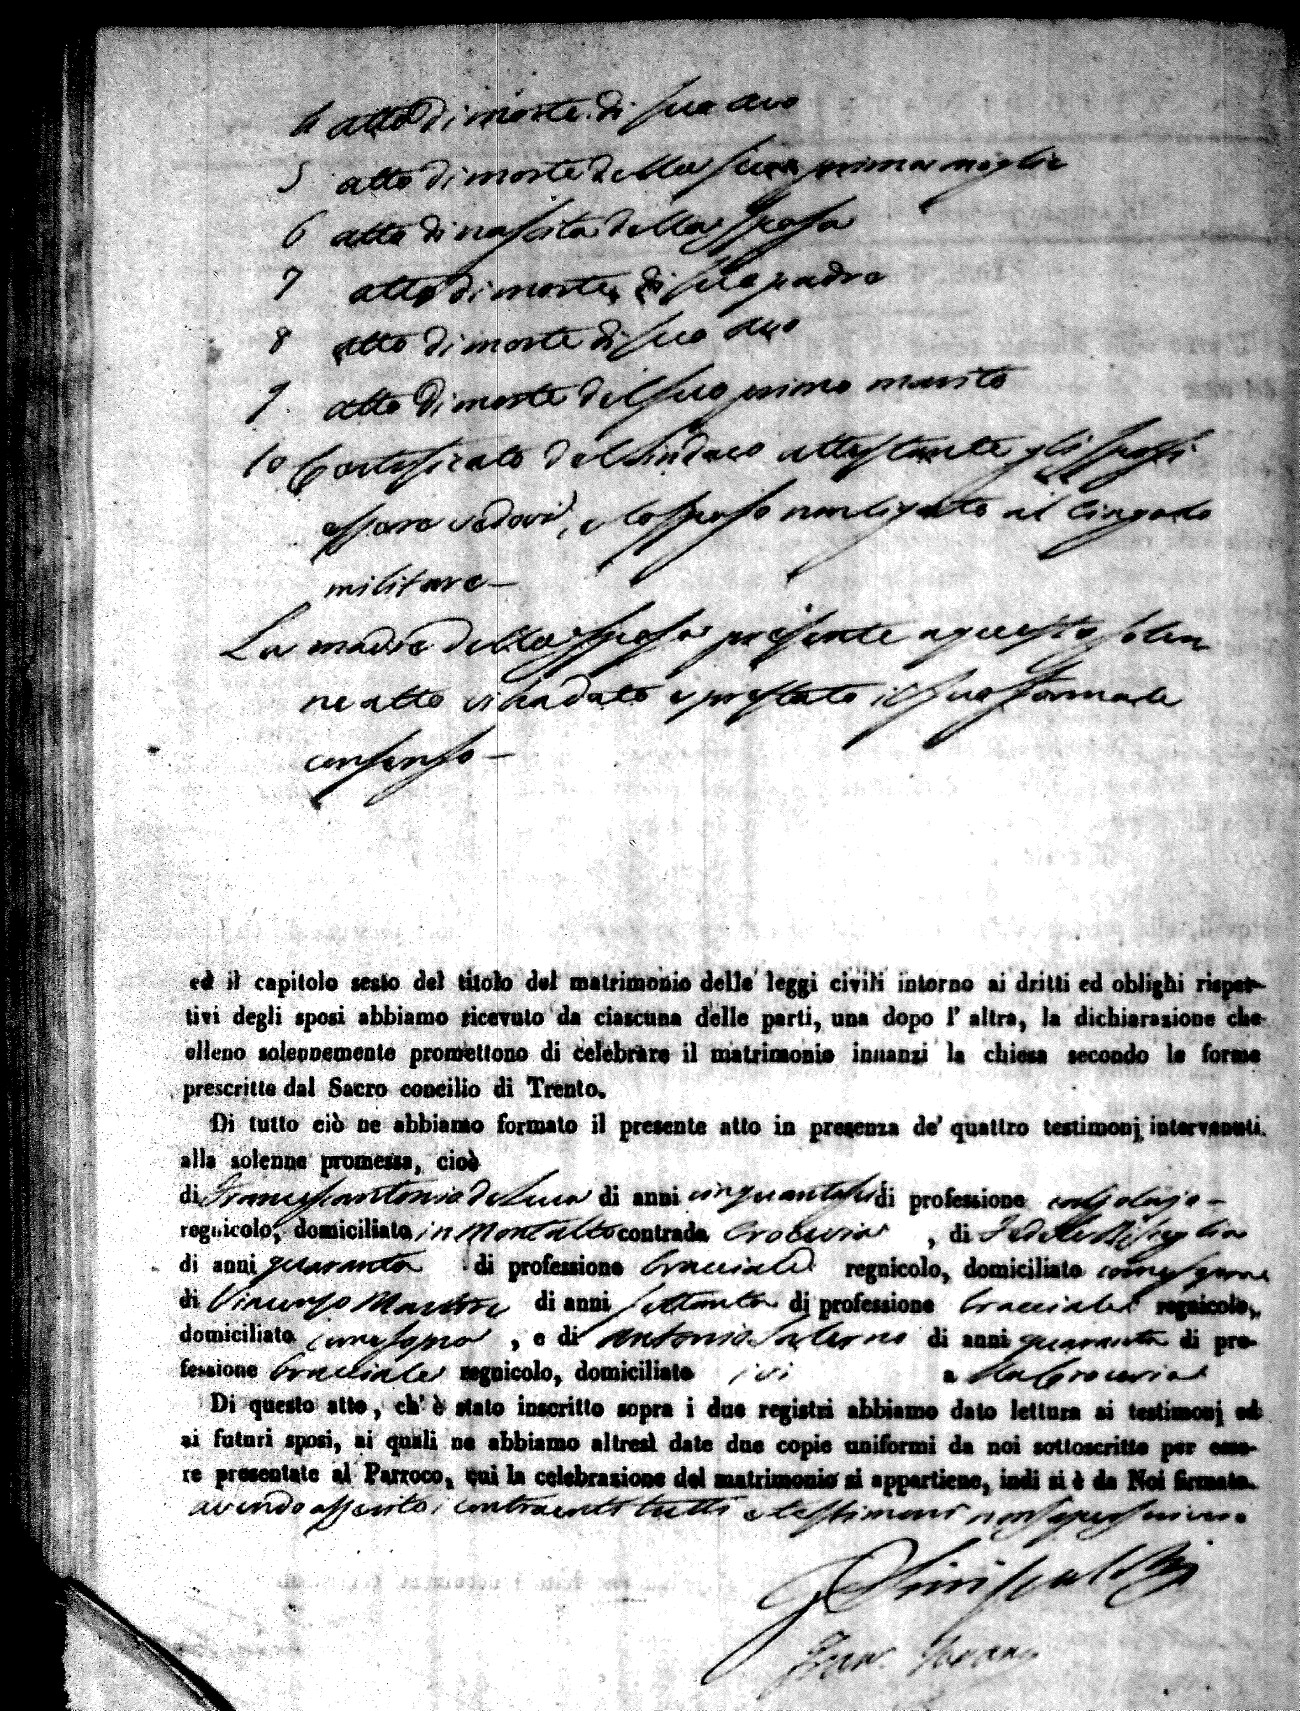 4 atto di morte di suo avo
5 atto di morte della sua prima moglie
6 atto di nascita della Sposa
7 atto di morte di suo padre
8 atto di morte di suo avo
9 atto di morte del suo primo marito
10 Certificato del Sindaco attestante gli sposi
essere vedovi, e lo sposo non ligato al cingolo
militare —
La madre della sposa presente a questo solen
ne atto vi ha dato e prestato il suo formale
consenso —
ed il capitolo sesto del titolo del matrimonio delle leggi civili intorno ai dritti ed oblighi rispet-
tivi degli sposi abbiamo ricevuto da ciascuna delle parti, una dopo l' altra, la dichiarazione che
elleno solennemente promettono di celebrare il matrimonio innanzi la chiesa secondo le forme
prescritte dal Sacro concilio di Trento.
Di tutto ciò ne abbiamo formato il presente atto in presenza de' quattro testimonj intervenuti
alla solenne promessa, cioè
di Francescantonio de Luca di anni cinquantasei di professione calzolajo —
regnicolo, domiciliato in Montalto contrada Crocevia , di Fedele Bisceglia
di anni quaranta di professione bracciale regnicolo, domiciliato come sopra
di Vincenzo di anni settanta di professione bracciale regnicolo,
domiciliato come sopra , e di Antonio Salerno di anni quaranta di pro-
fessione bracciale regnicolo, domiciliato ivi alla Crocevia
Di questo atto, ch' è stato inscritto sopra i due registri abbiamo dato lettura ai testimonj ed
ai futuri sposi, ai quali ne abbiamo altresì date due copie uniformi da noi sottoscritte per esse-
re presentate al Parroco, cui la celebrazione del matrimonio si appartiene, indi si è da Noi firmato.
avendo asserito i contraenti tutti e testimoni non saper scrivere